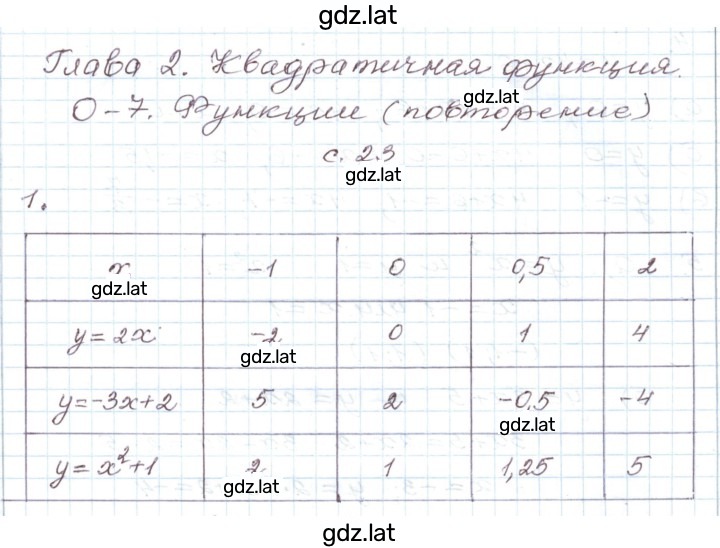 gdz.lat
Глава 2. Квадратичная функция.
gdz.lat
О-7. Функции (повторение)
с. 23
gdz.lat
1.
x -1 0 0,5 2
gdz.lat
y=2x -2 0 1 4
gdz.lat
y=-3x+2 5 2 -0,5 -4
gdz.lat
y=x²+1 2 1 1,25 5
gdz.lat
gdz.lat